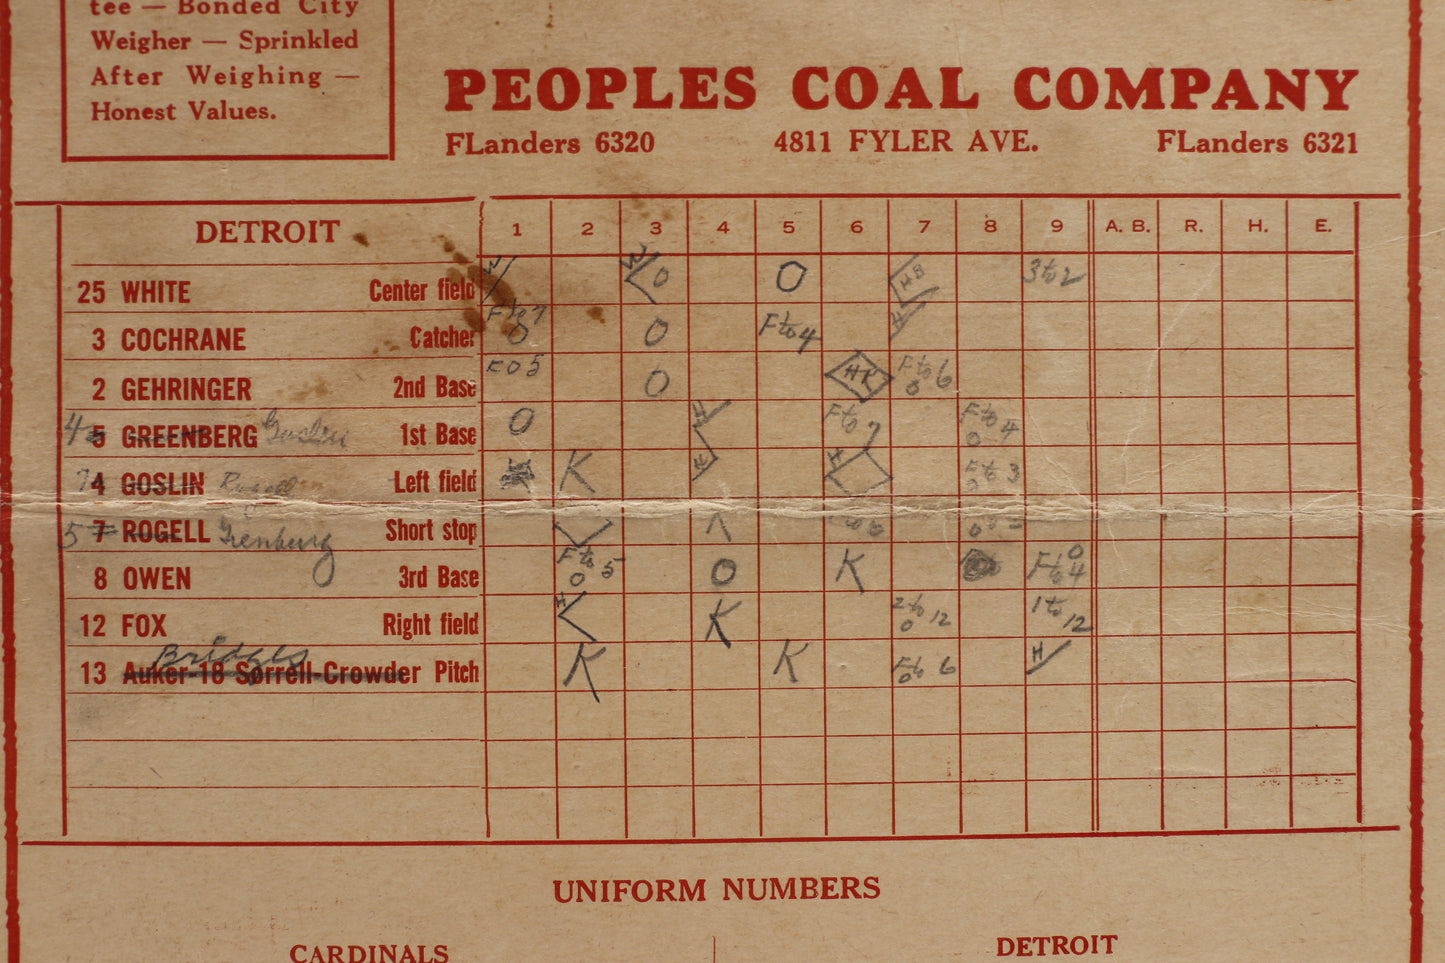 tee — Bonded City
Weigher — Sprinkled
After Weighing —
Honest Values.
PEOPLES COAL COMPANY
FLanders 6320 4811 FYLER AVE. FLanders 6321
DETROIT 1 2 3 4 5 6 7 8 9 A. B. R. H. E.
25 WHITE Center field W W O O HB 3 to 2
3 COCHRANE Catcher F to 7 O O F to 4 H
2 GEHRINGER 2nd Base 5 O HR F to 6 O
4 5 GREENBERG Goslin 1st Base O H F to 7 F to 4 O
7 4 GOSLIN Rogell Left field K H H F to 3 O
5 7 ROGELL Grenburg Short stop O
8 OWEN 3rd Base F to 5 O O K F to 4 O
12 FOX Right field H K 2 to 12 O 1 to 12
Bridges
13 Auker-18 Sorrell-Crowder Pitch K K F to 6 O H
UNIFORM NUMBERS
CARDINALS DETROIT